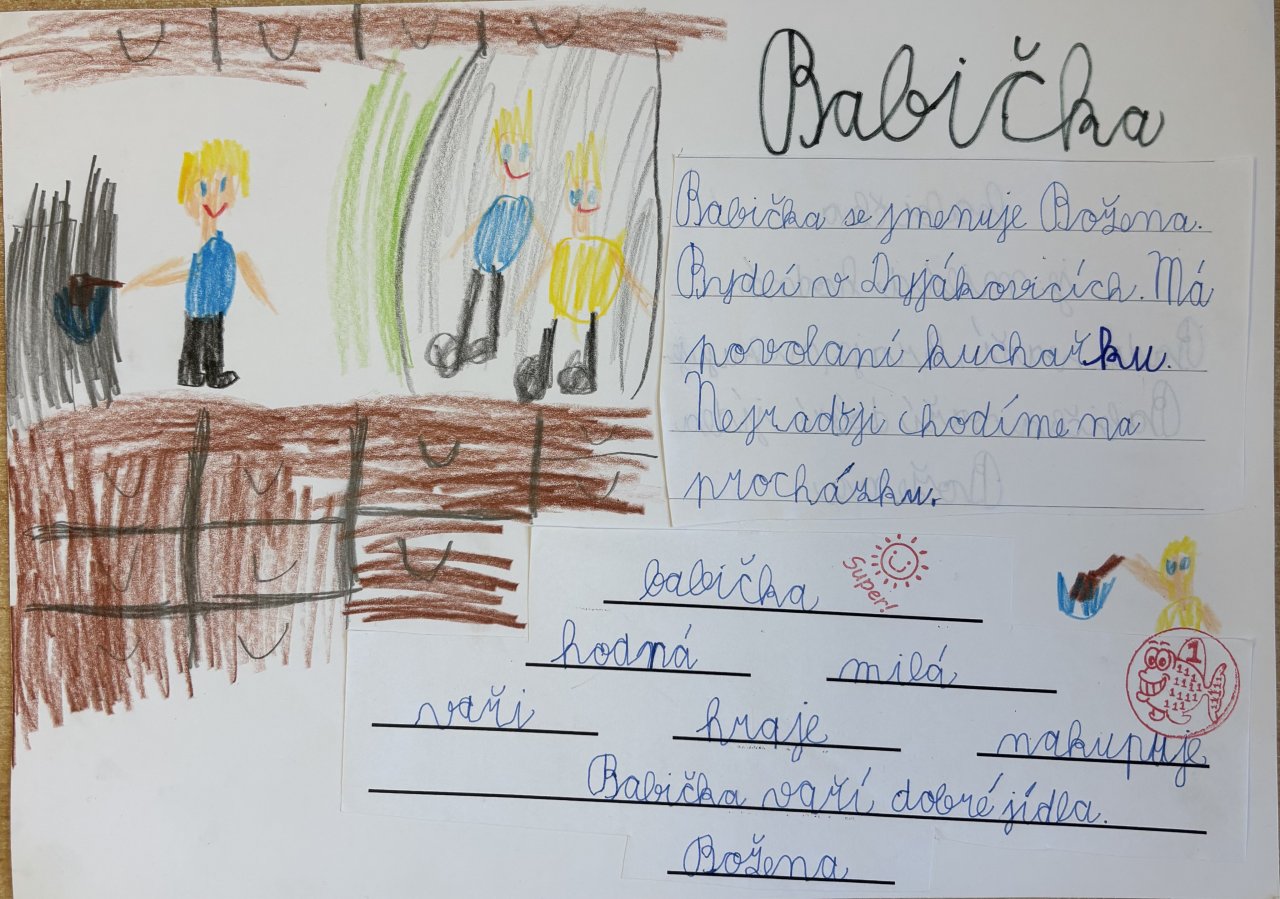 Babička
Babička se jmenuje Božena.
Bydlí v Dyjákovicích. Má
povolaní kuchařku.
Nejraději chodíme na
procházku.
babička
Super!
hodná milá
vaři hraje nakupuje
1
Babička vaří dobré jídla.
Božena